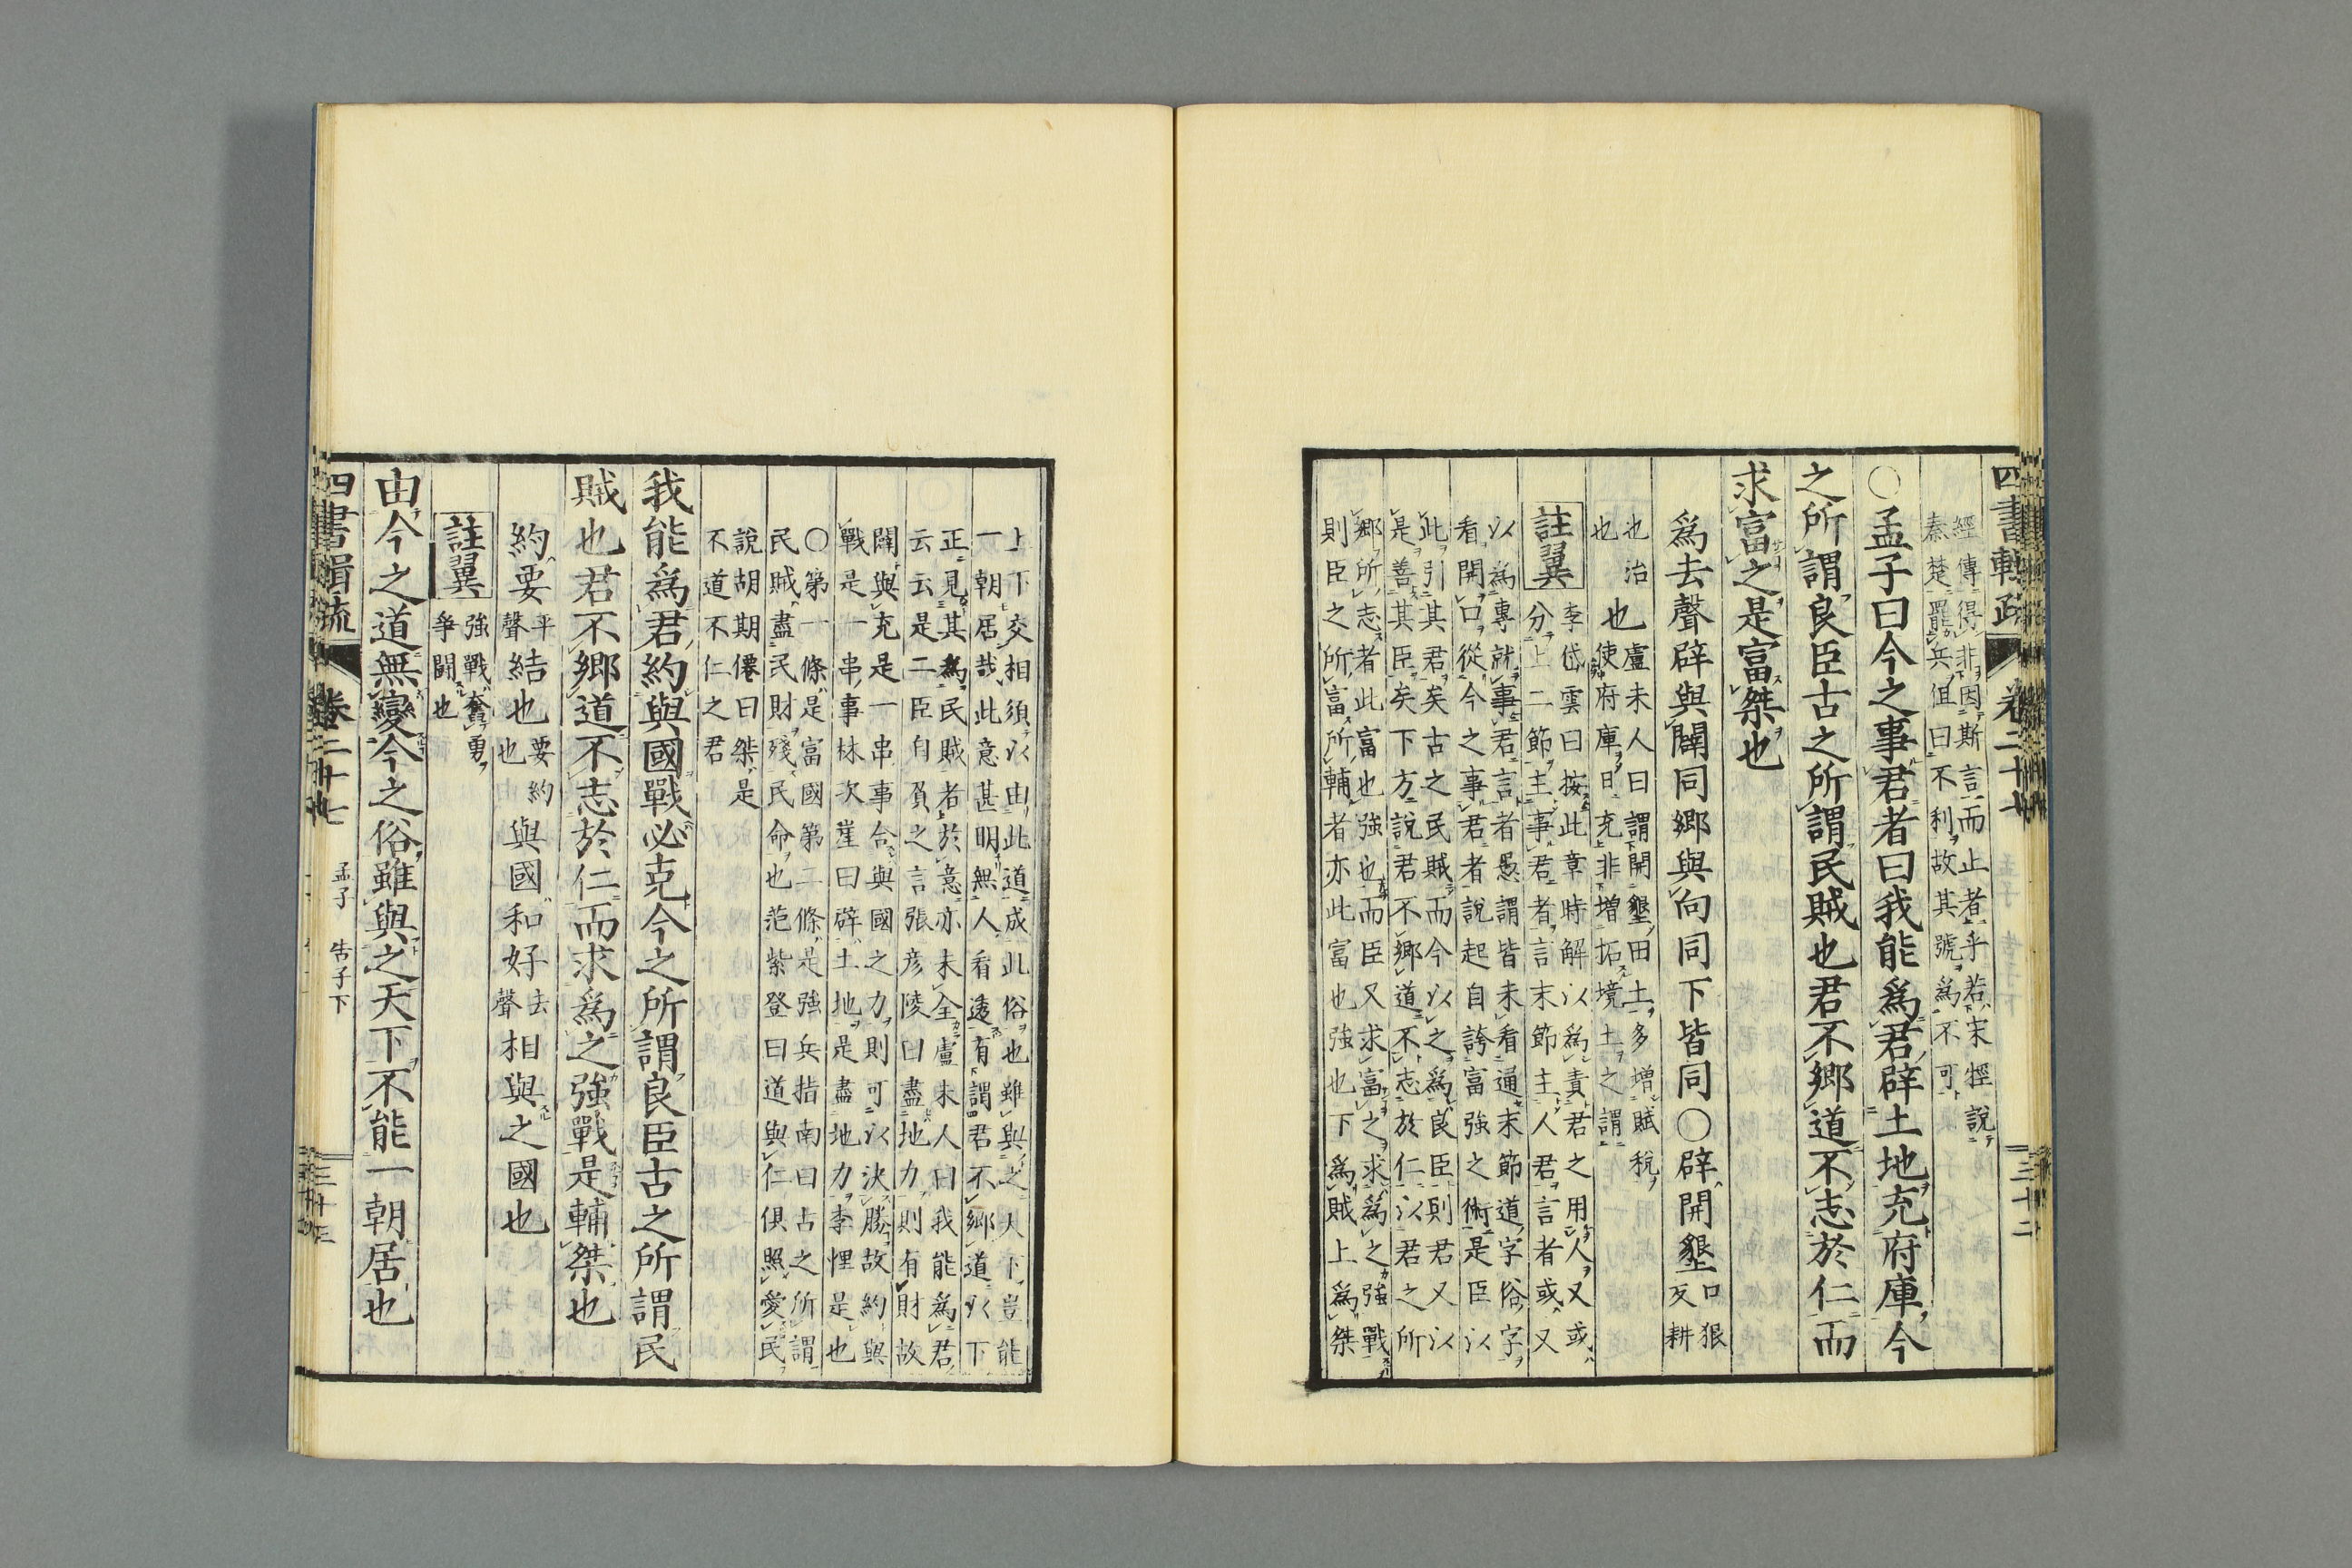 四書輯疏 卷二十七
三十二
經傳得非因斯言而止者乎若宋牼說
秦楚罷兵但曰不利故其號爲不可
○孟子曰今之事君者曰我能爲君辟土地充府庫今
之所謂良臣古之所謂民賊也君不鄉道不志於仁而
求富之是富桀也
爲去聲辟與闢同鄉與向同下皆同○辟開墾
口狠
反耕
也治
也
也
盧未人曰謂開墾田土多增賦稅
使府庫日充非增拓境土之謂
註翼
李岱雲曰按此章時解以爲責君之用人又或
分上二節主事君者言末節主人君言者或又
以爲專就事君言者愚謂皆未看通末節道字俗字
看開口從今之事君者說起自誇富強之術是臣以
此引其君矣古之民賊而今以之爲良臣則君又以
是善其臣矣下方說君不鄉道不志於仁以君之所
鄉所志者此富也強也而臣又求富之求爲之強戰
則臣之所富所輔者亦此富也強也下爲賊上爲桀
上下交相須以由此道成此俗也雖與之天下豈能
一朝居哉此意甚明無人看透有謂君不鄉道以下
正見其爲民賊者於意亦未全盧未人曰我能爲君
云云是二臣自負之言張彥陵曰盡地力則有財故
闢與充是一串事合與國之力則可以決勝故約與
戰是一串事林次崖曰辟土地是盡地力李悝是也
○第一條是富國第二條是強兵指南曰古之所謂
民賊盡民財殘民命也范紫登曰道與仁俱照愛民
說胡期僊曰桀是
不道不仁之君
我能爲君約與國戰必克今之所謂良臣古之所謂民
賊也君不鄉道不志於仁而求爲之強戰是輔桀也
約要
平
聲
結也
要約
也
與國和好
去
聲
相與之國也
註翼
強戰奮勇
爭鬪也
由今之道無變今之俗雖與之天下不能一朝居也
四書輯疏 卷二十七 孟子 告子下
三十三